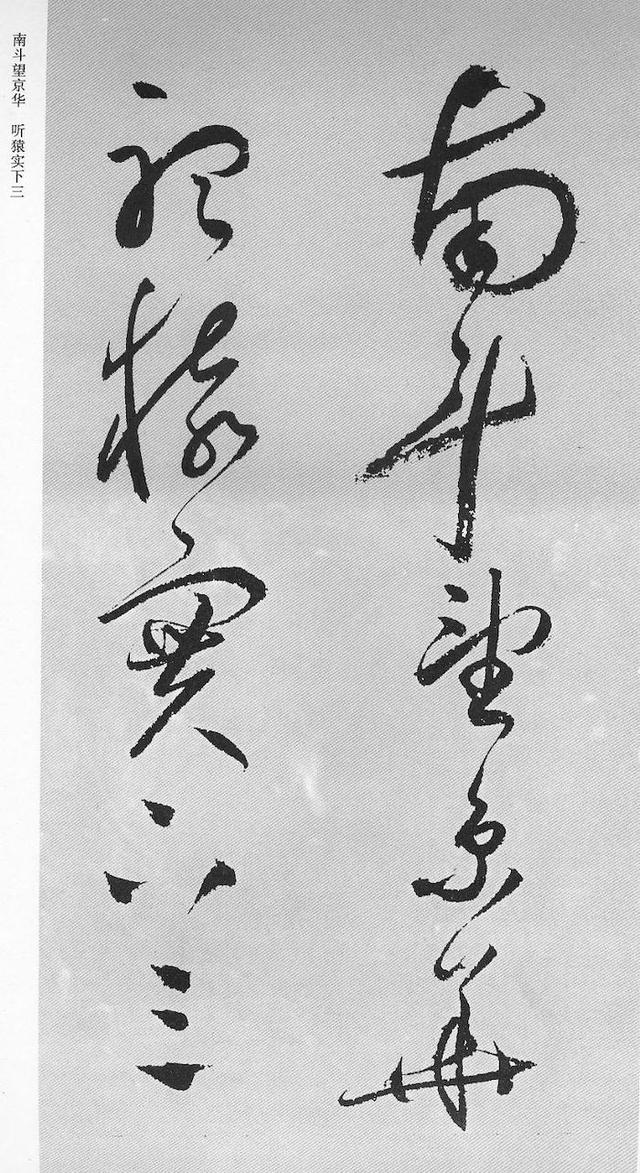 南斗望京華
聽猿實下三
南斗望京华　听猿实下三